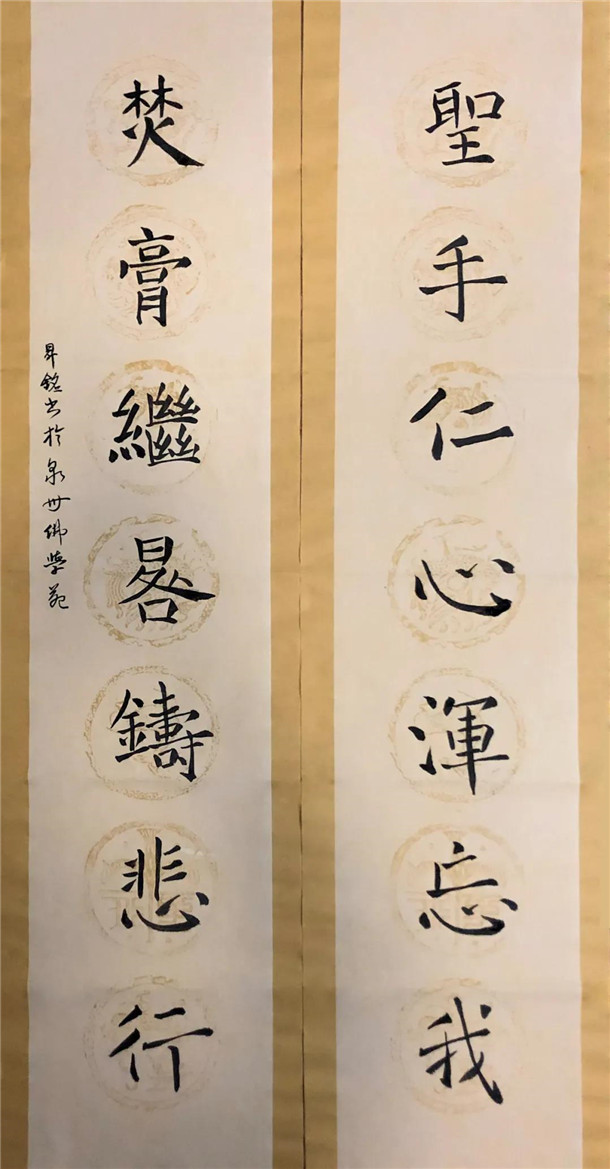 聖手仁心渾忘我
焚膏繼晷鑄悲行
昇銘書於泉世佛學苑